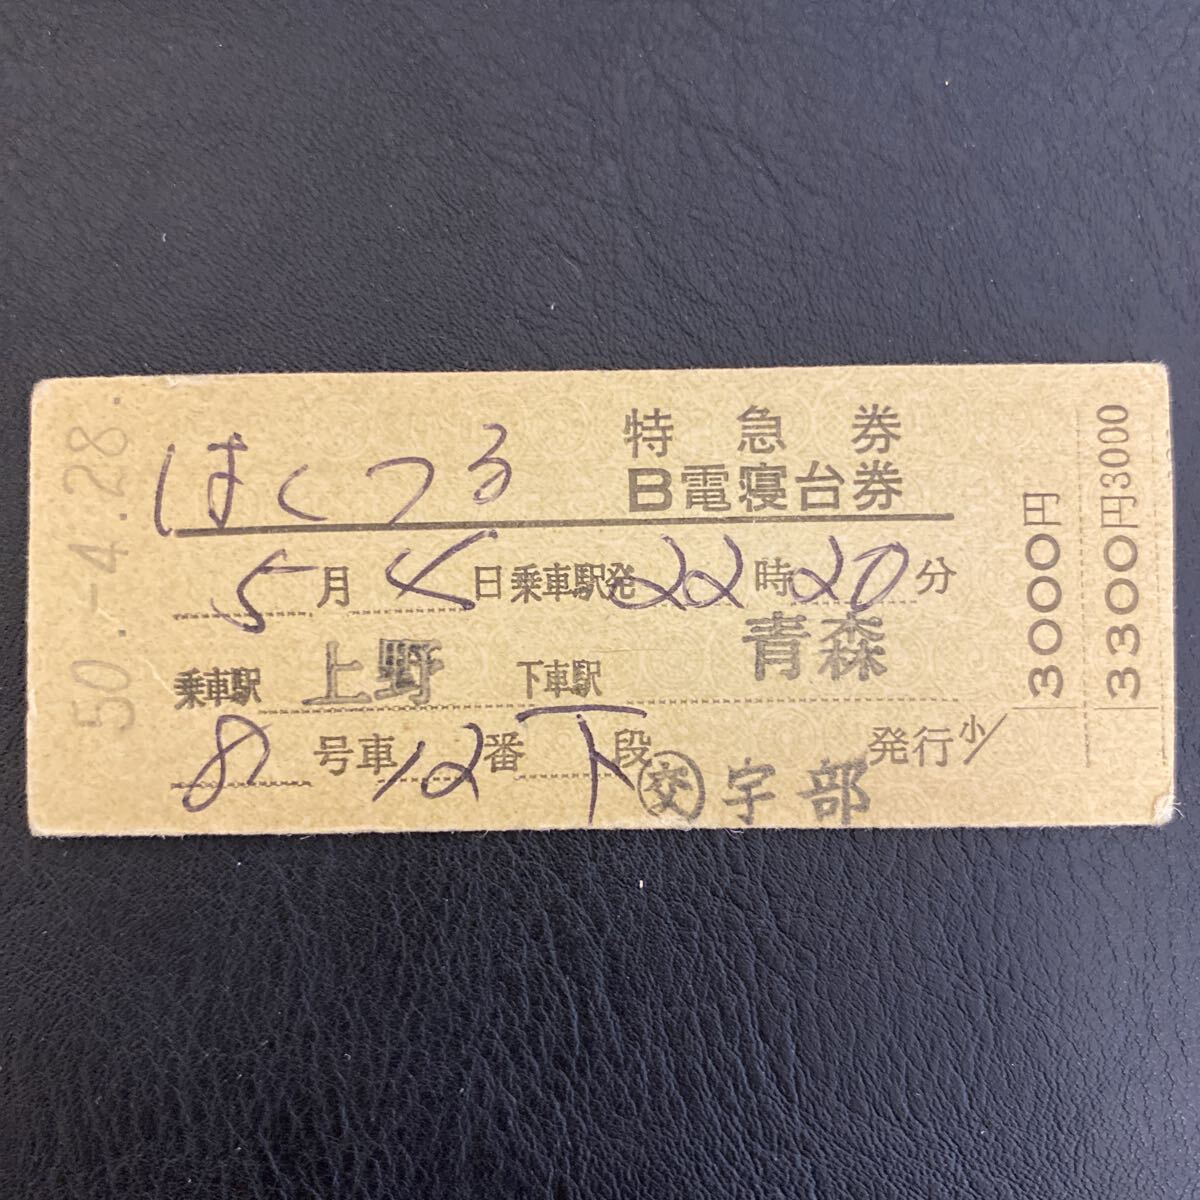 50.-4.28.
はくつる
特急券
B電寝台券
5月
日乗車駅発22時20分
乗車駅 上野 下車駅 青森
8号車12番下段 発行小/
交 宇部
3000円
3300円3000